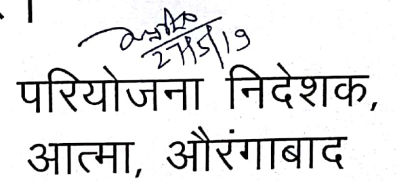 27/5/19
परियोजना निदेशक,
आत्मा, औरंगाबाद